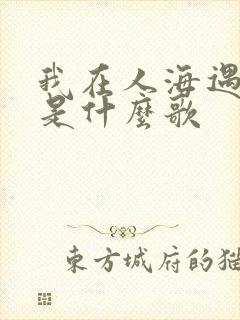 我在人海遇
是什麼歌
東方城府的猫